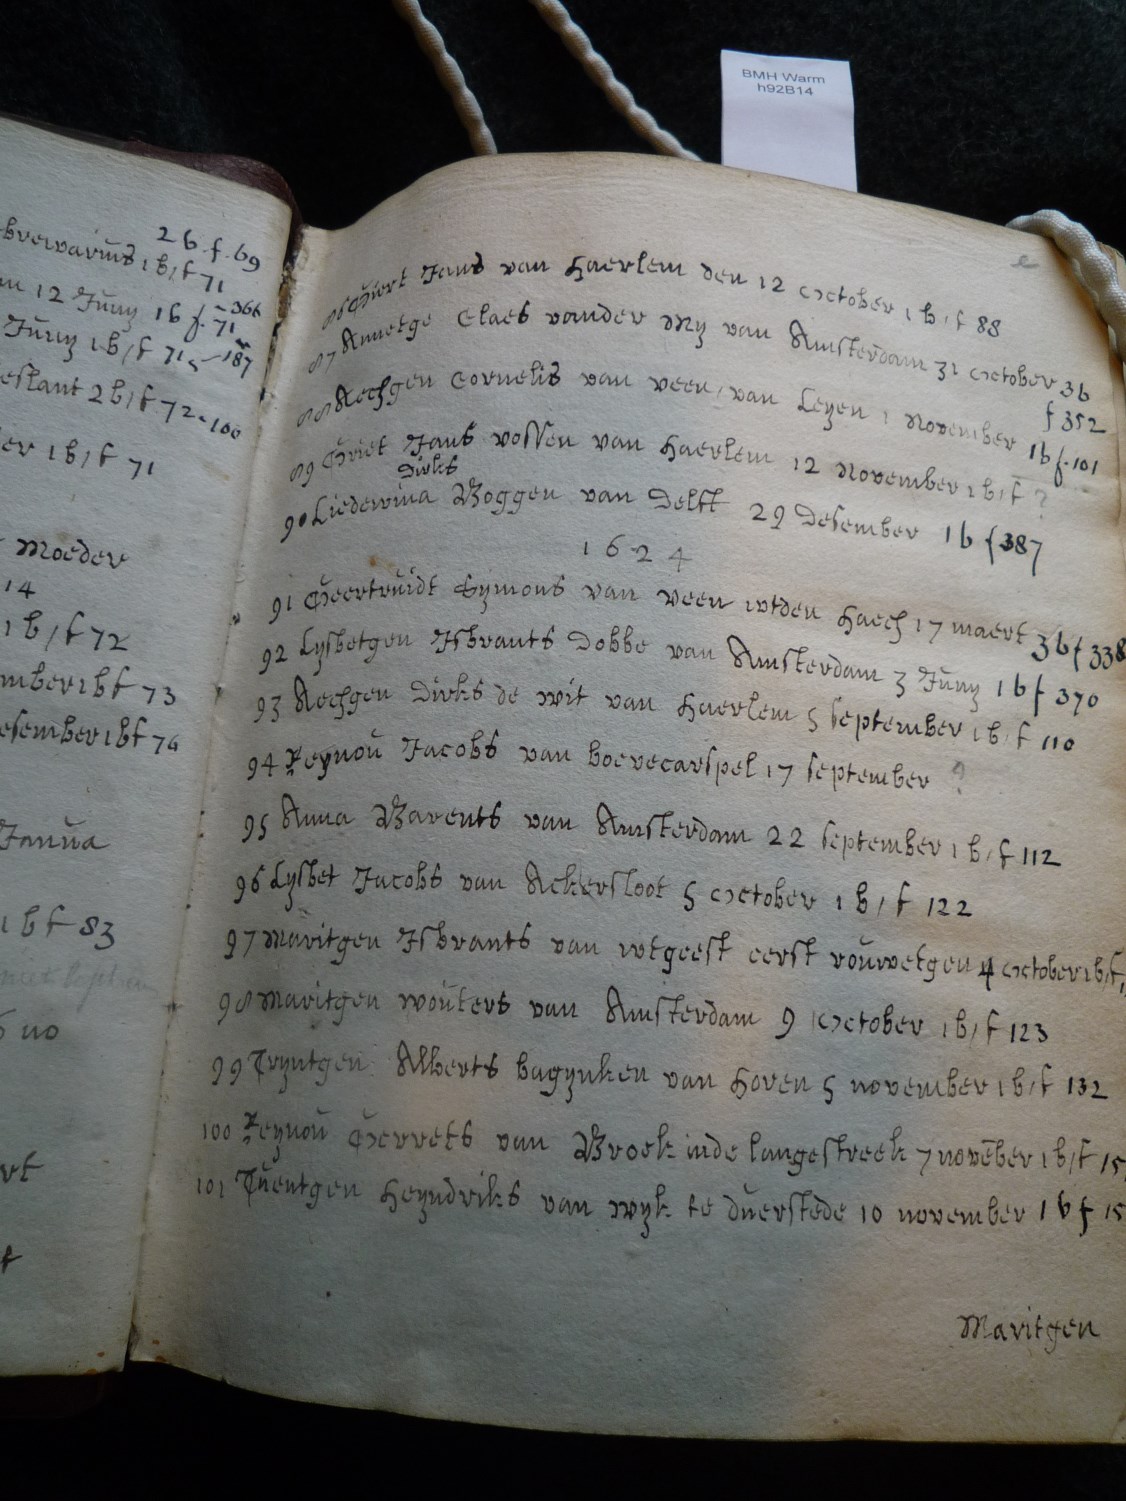 BMH Warm
h92B14
2 b f 69
brevvariūs 1 b / f 71
12 Jūny 1 b f 71 - 366
Jūny 1 b / f 71 - 187
eslant 2 b / f 72 - 100
er 1 b / f 71
Moeder
14
1 b / f 72
mber 1 b f 73
esember 1 b f 74
Janūa
1 b f 83
110
rt
e
86 Griert Jans van Haerlem den 12 october 1 b / f 88
87 Annetge Claes vander My van Amsterdam 31 october 3 b
f 352
88 Aechgen Cornelis van veen / van Leyen 1 November 1 b f 101
89 Griet Jans vossen van Haerlem 12 November 1 b / f ?
Dirks
90 Liedewina Boggen van Delft 29 Desember 1 b f 387
1624
91 Geertruidt Symons van veen wtden Haech 17 maert 3 b f 338
92 Lysbetgen Isbrants Dobbe van Amsterdam 3 Jūny 1 b f 370
93 Aechgen Dirks de wit van Haerlem 5 september 1 b / f 110
94 Reynoū Jacobs van boevecarspel 17 september ?
95 Anna Barents van Amsterdam 22 september 1 b / f 112
96 Lysbet Jacobs van Ackersloot 5 october 1 b / f 122
97 Maritgen Isbrants van wtgeest eerst voūwetgen 4 october 1 b / f
98 Maritgen woūters van Amsterdam 9 october 1 b / f 123
99 Tryntgen Alberts bagynken van Horen 5 november 1 b / f 132
100 Reynoū Gerrets van Broek inde langestreek 7 novēber 1 b / f 15
101 Tūentgen Heyndriks van wyk te dūerstede 10 november 1 b f 15
Maritgen